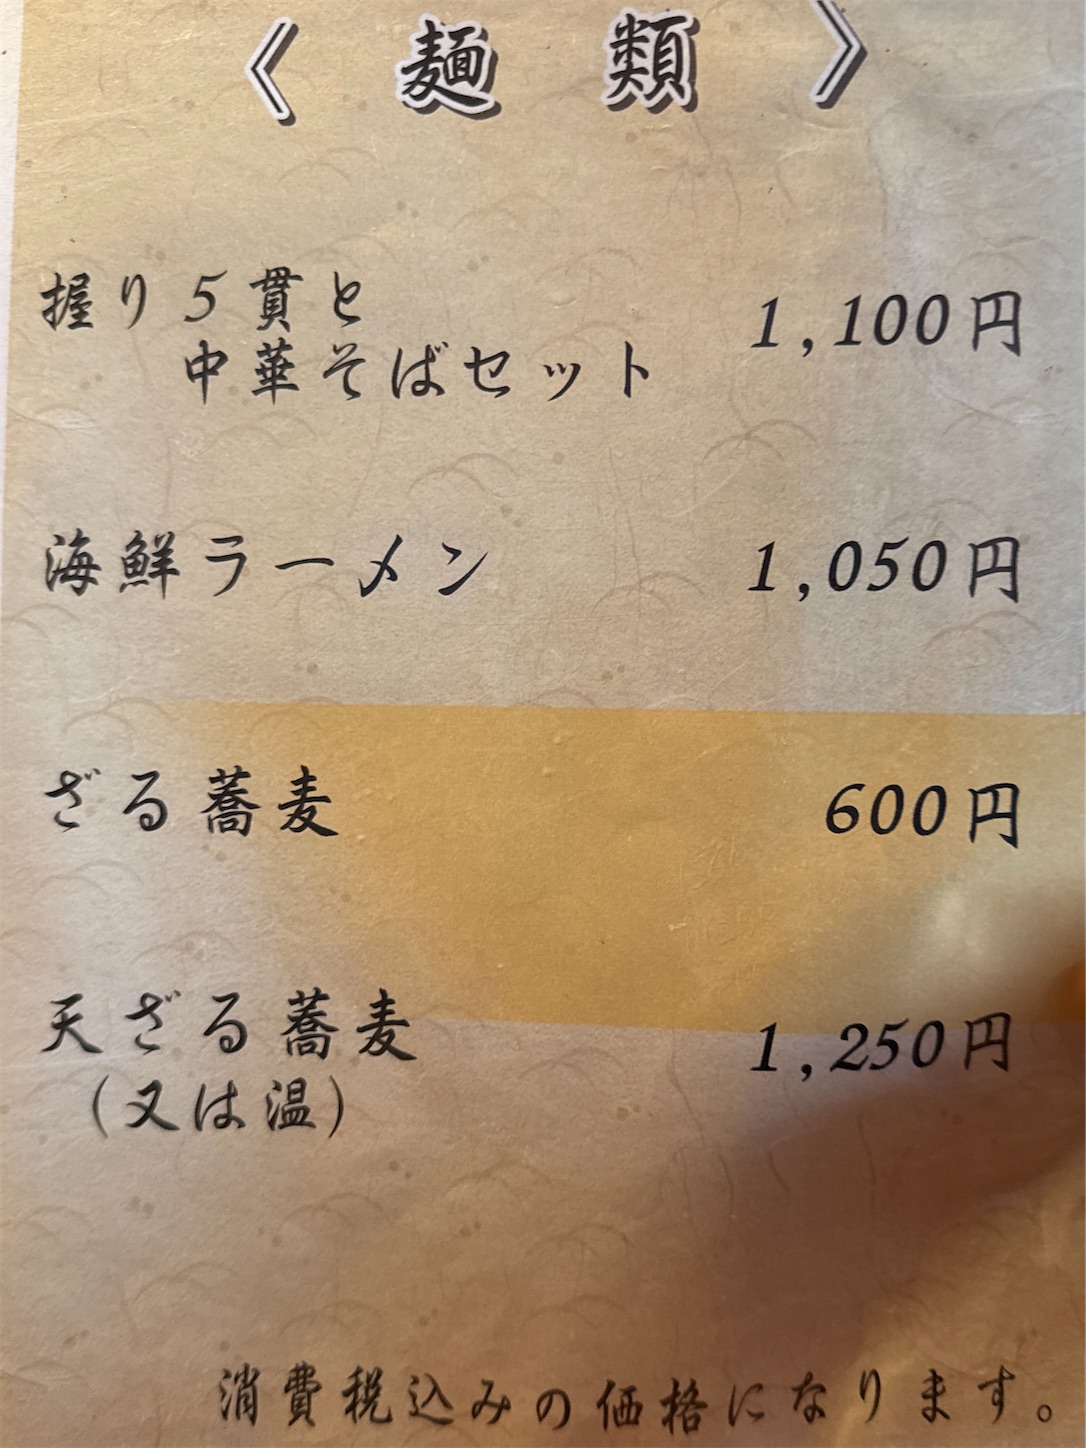 《 麺 類 》
握り5貫と
中華そばセット 1,100円
海鮮ラーメン 1,050円
ざる蕎麦 600円
天ざる蕎麦 1,250円
(又は温)
消費税込みの価格になります。